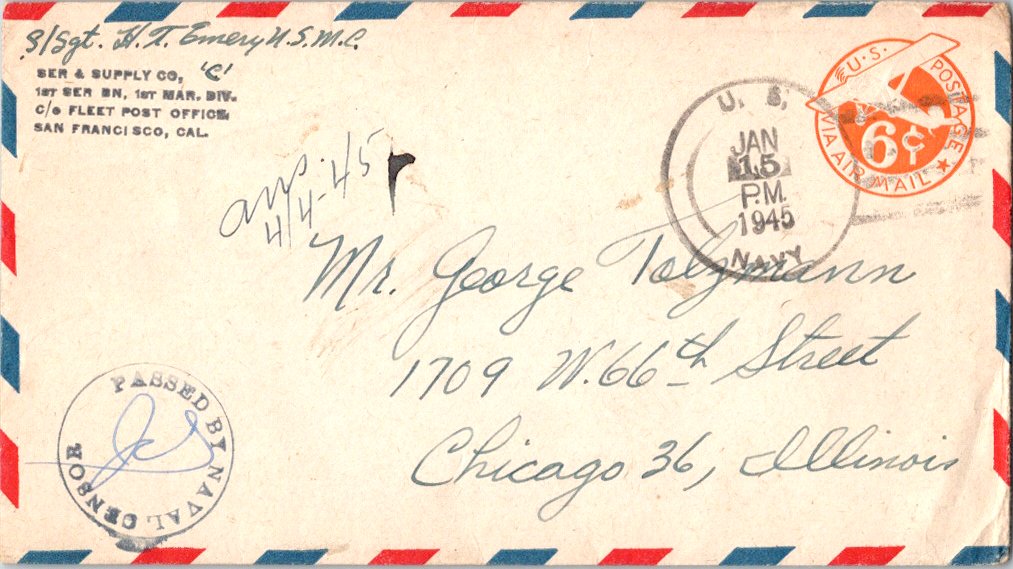 S/Sgt. H.T. Emery U.S.M.C.
SER & SUPPLY CO, "C"
1ST SER BN, 1ST MAR. DIV.
C/o FLEET POST OFFICE,
SAN FRANCISCO, CAL.
U.S. POSTAGE
6¢
VIA AIR MAIL
U. S.
JAN
15
P.M.
1945
NAVY
ans
4/4-45
Mr. George Tolzmann
1709 W. 66th Street
Chicago 36, Illinois
PASSED BY NAVAL CENSOR